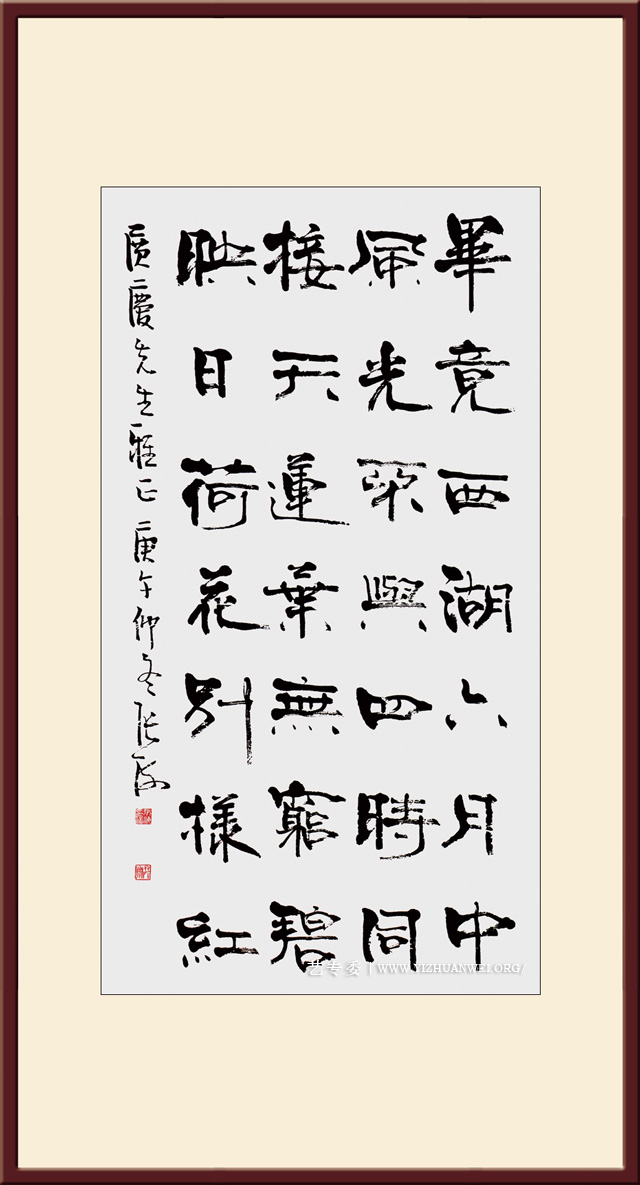 畢竟西湖六月中
風光不與四時同
接天蓮葉無窮碧
映日荷花別樣紅
廣慶先生雅正 庚午仲冬 張海
艺专委 | WWW.YIZHUANWEI.ORG/